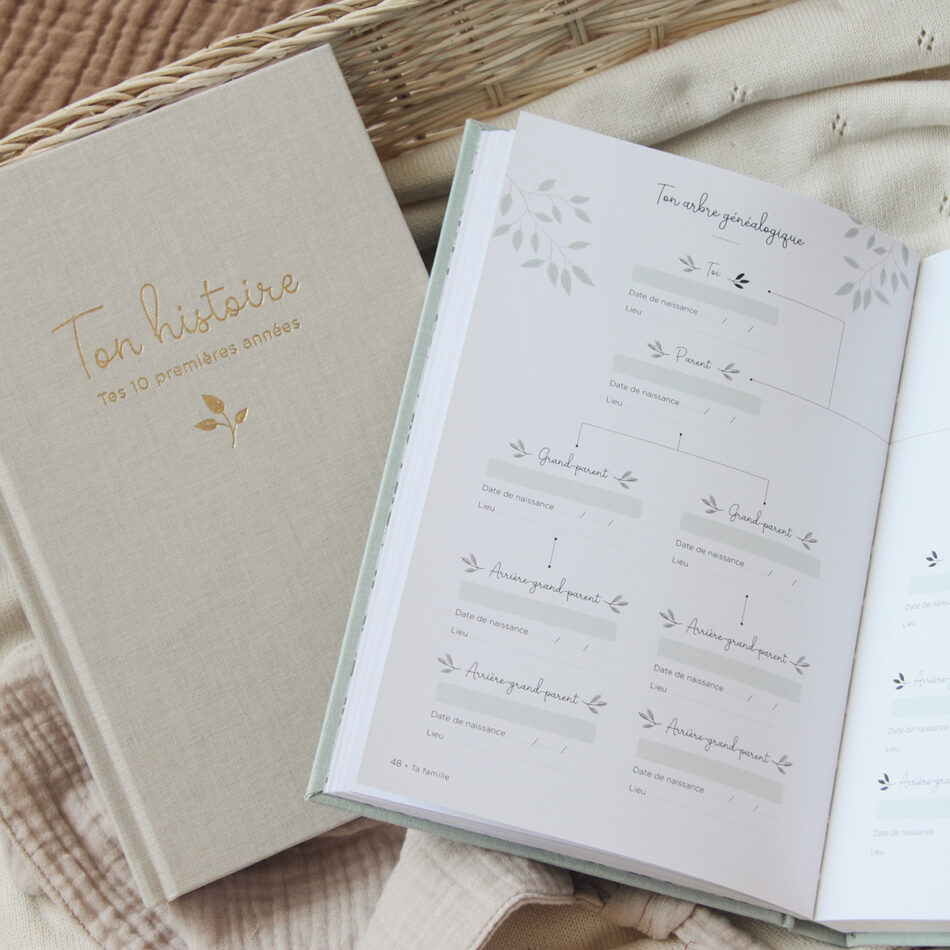 Ton histoire
Tes 10 premières années
Ton arbre généalogique
Toi
Date de naissance / /
Lieu
Parent
Date de naissance / /
Lieu
Grand-parent
Date de naissance / /
Lieu
Grand-parent
Date de naissance / /
Lieu
Arrière-grand-parent
Date de naissance / /
Lieu
Arrière-grand-parent
Date de naissance / /
Lieu
Arrière-grand-parent
Date de naissance / /
Lieu
Arrière-grand-parent
Date de naissance / /
Lieu
48 • Ta famille
Lieu
Date de naissance
Lieu
Date de naissance
Lieu